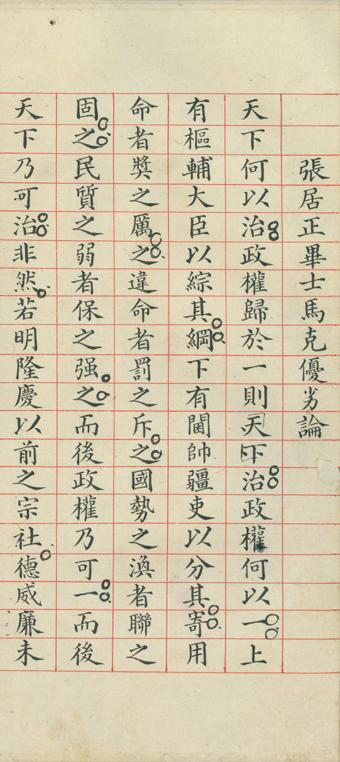 張居正畢士馬克優劣論
天下何以治政權歸於一則天下治政權何以一上
有樞輔大臣以綜其綱下有閫帥疆吏以分其寄用
命者獎之厲之違命者罰之斥之國勢之渙者聯之
固之民質之弱者保之强之而後政權乃可一而後
天下乃可治非然若明隆慶以前之宗社德威廉未